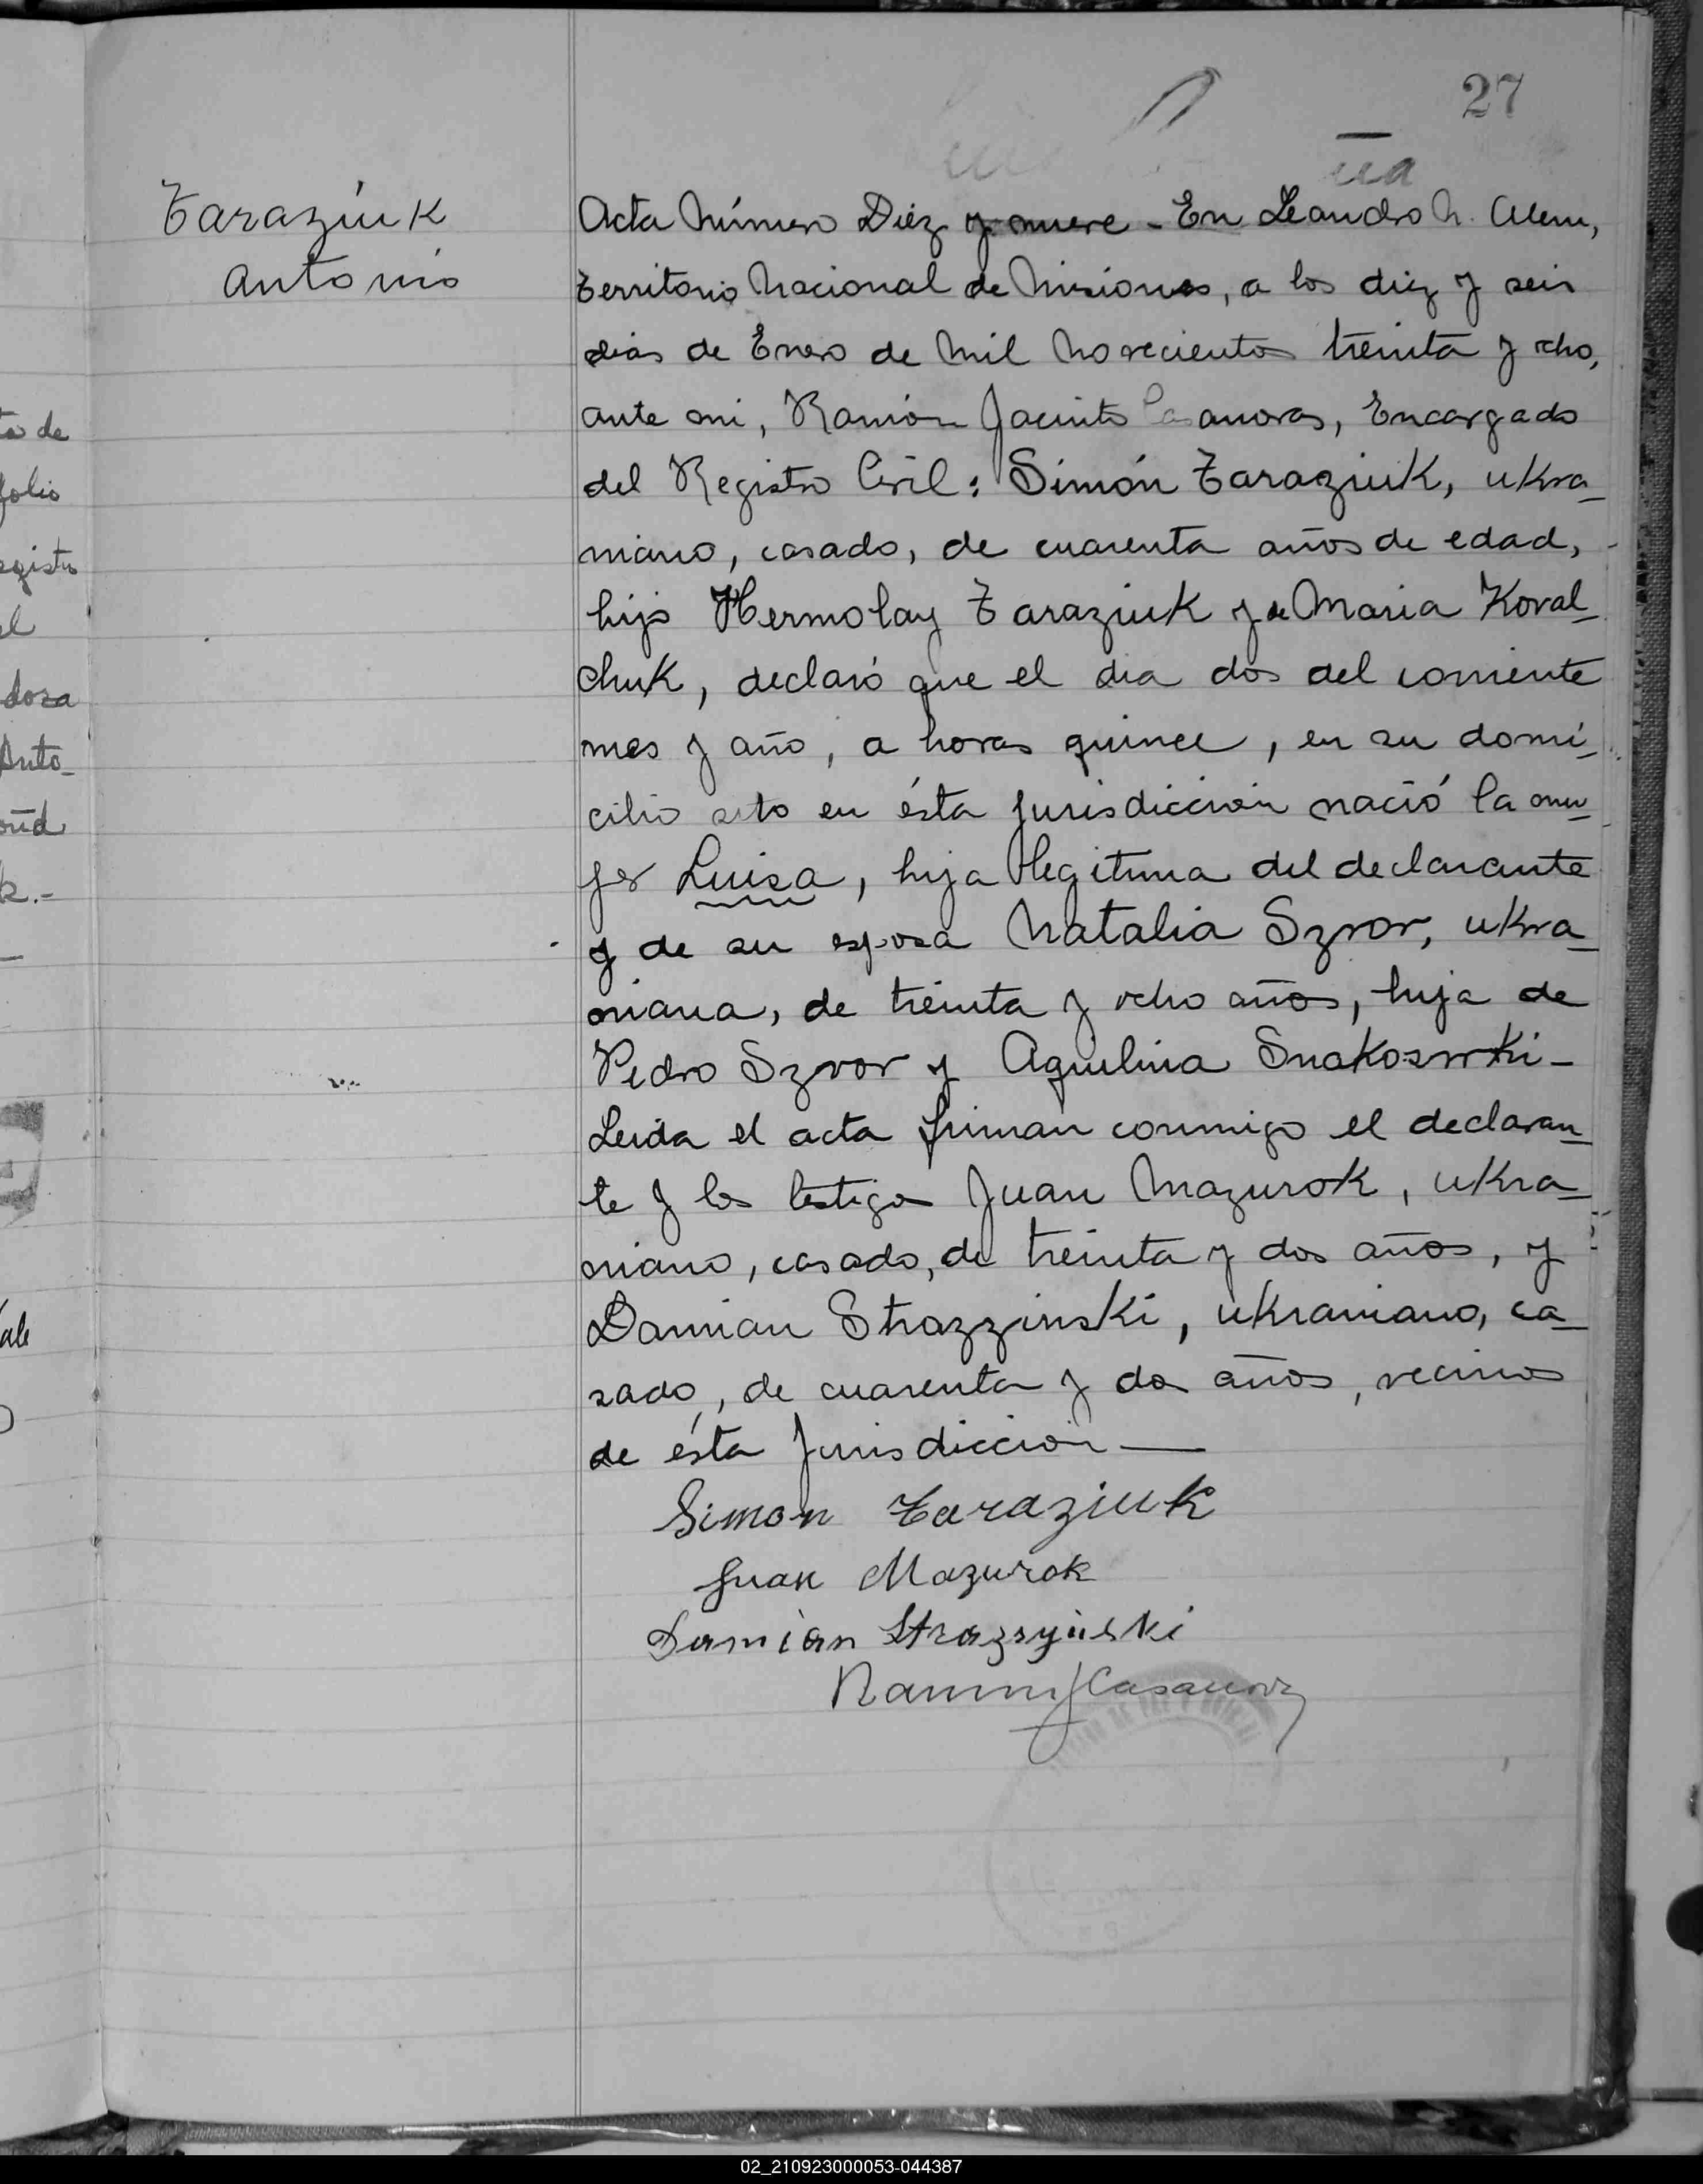 27
Taraziuk
Antonio
Acta Número Diez y nueve - En Leandro N. Alem,
Territorio Nacional de Misiones, a los diez y seis
dias de Enero de mil novecientos treinta y ocho,
ante mi, Ramón Jacinto Casanovas, Encargado
del Registro Civil: Simón Taraziuk, ukra_
niano, casado, de cuarenta años de edad,
hijo Hermolay Taraziuk y de Maria Koval_
chuk, declaró que el dia dos del corriente
mes y año, a horas quince, en su domi_
cilio sito en ésta jurisdicción nació la mu_
jer Luisa, hija legitima del declarante
y de su esposa Natalia Szvor, ukra_
niana, de treinta y ocho años, hija de
Pedro Szvor y Aquilina Snakoswki -
Leida el acta firman conmigo el declaran_
te y los testigos Juan Mazurok, ukra_
niano, casado, de treinta y dos años, y
Damian Strazzinski, ukraniano, ca_
sado, de cuarenta y dos años, vecinos
de ésta jurisdicción —
Simon Taraziuk
Juan Mazurok
Damián Strazsyński
Ramon J Casanova
to de
folio
egistro
el
doza
Anto_
k.-
02_210923000053-044387